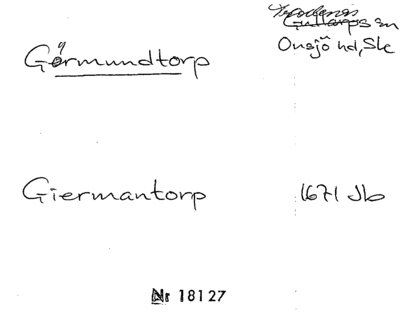 Görmundtorp
Gullarps sn
Onsjö hd, Sk
Giermantorp
1671 Jb
Nr 18127